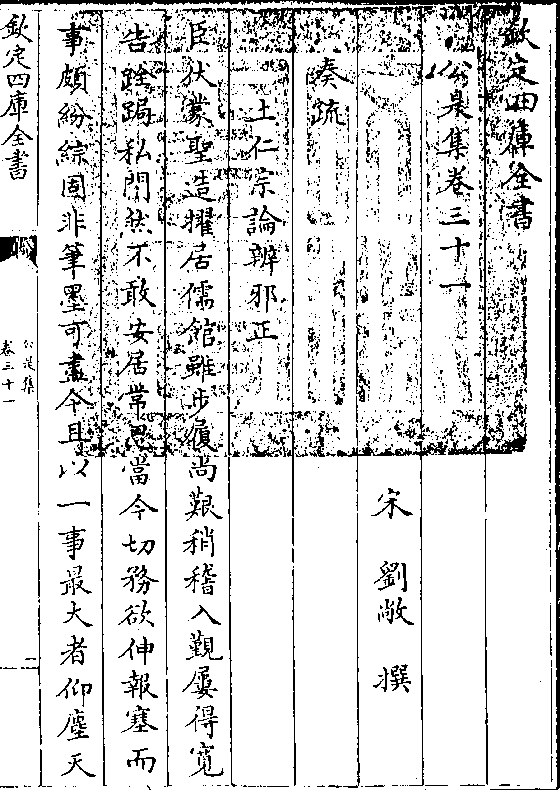 欽定四庫全書
公是集卷三十一
宋 劉敞 撰
奏疏
上仁宗論辨邪正
臣伏蒙聖造擢居儒館雖步履尚艱稍稽入覲屢得寛
告跧跼私門然不敢安居常思當今切務欲伸報塞而
事頗紛綜固非筆墨可盡今且以一事最大者仰塵天
欽定四庫全書
公是集
卷三十一